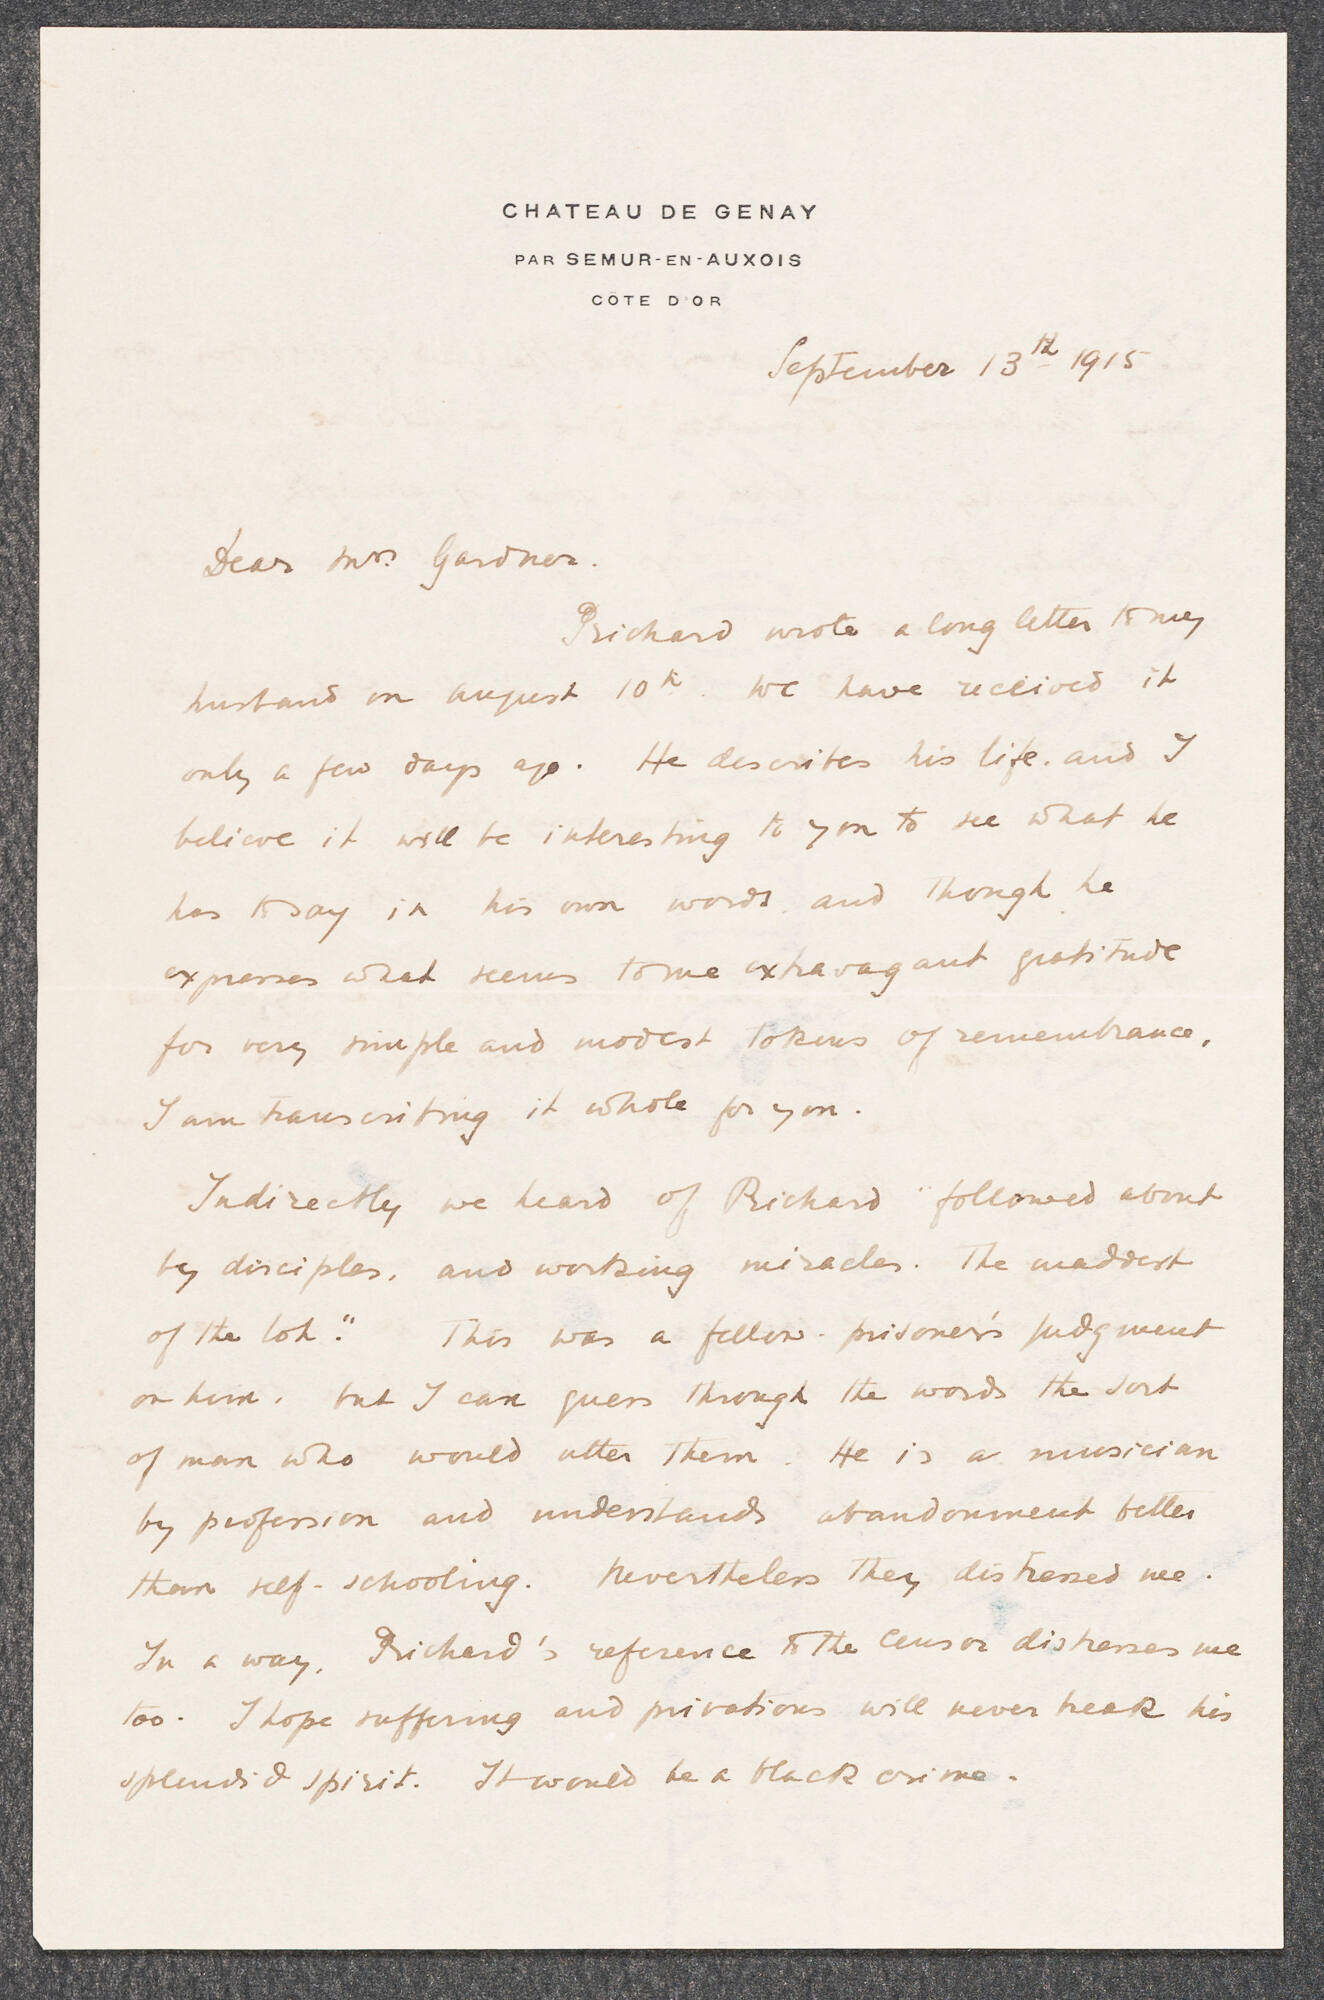 CHATEAU DE GENAY
PAR SEMUR-EN-AUXOIS
CÔTE D'OR
September 13th 1915
Dear Mrs. Gardner.
Prichard wrote a long letter to my
husband on August 10th. We have received it
only a few days ago. He describes his life, and I
believe it will be interesting to you to see what he
has to say in his own words and though he
expresses what seems to me extravagant gratitude
for very simple and modest tokens of remembrance,
I am transcribing it whole for you.
Indirectly we heard of Prichard "followed about
by disciples, and working miracles. The maddest
of the lot." This was a fellow-prisoner's judgment
on him, but I can guess through the words the sort
of man who would utter them. He is a musician
by profession and understands abandonment better
than self-schooling. Nevertheless they distressed me.
In a way, Prichard's reference to the Censor distresses me
too. I hope suffering and privations will never break his
splendid spirit. It would be a black crime.